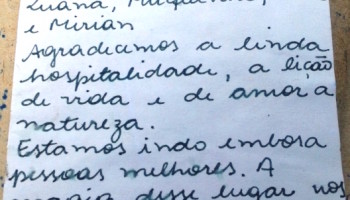 Luana,
e Mirian
Agradecemos a linda
hospitalidade, a lição
de vida e de amor a
natureza.
Estamos indo embora
pessoas melhores. A
magia desse lugar nos